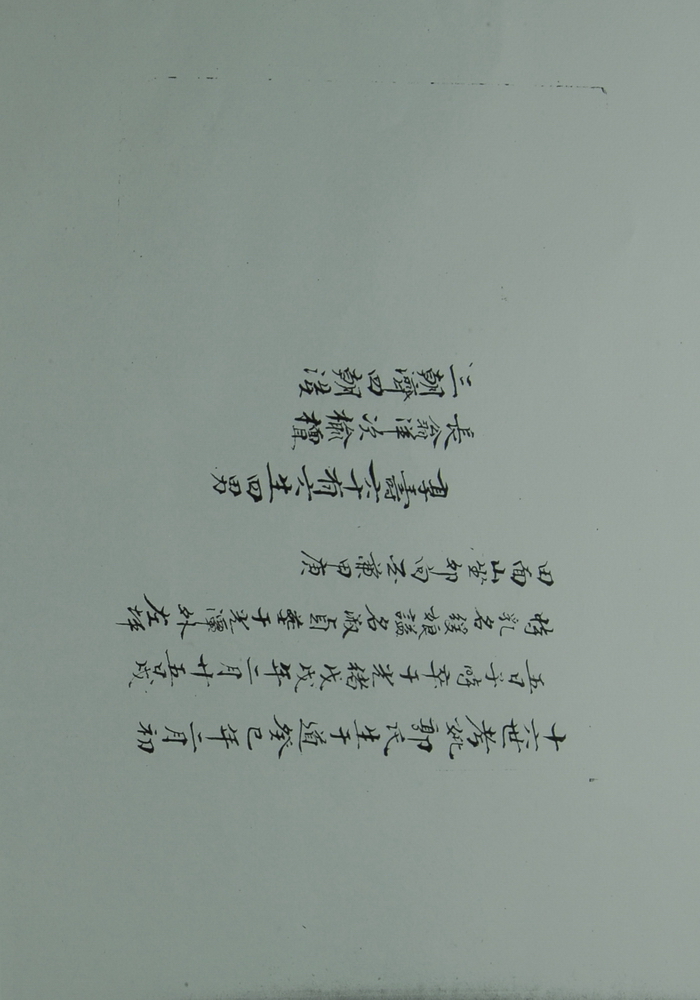 十六世考妣郭氏生于道癸巳年二月初
五日子時卒于光緒戊戌年二月廿五日戌
時乳名緩娘諡名淑貞葬于光外左坪
田面山坐卯向兼甲庚
享壽六十有六生四男
長翁澤次榆
三朝濟四朝